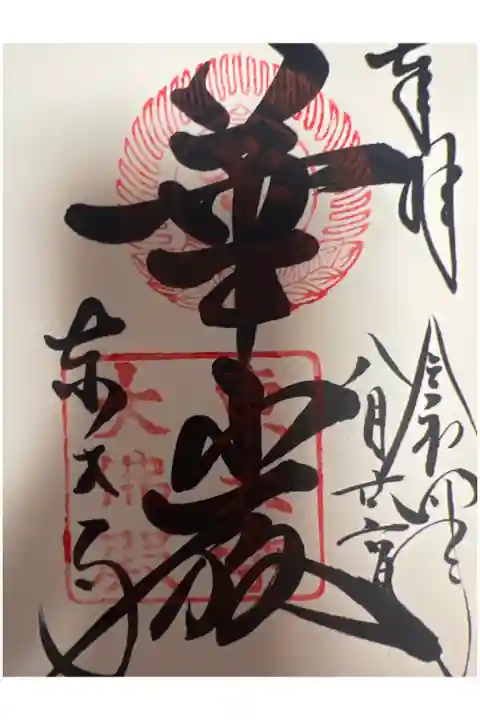 奉拝
令和四年
八月廿六日
華厳
東大寺
東大寺
大佛殿